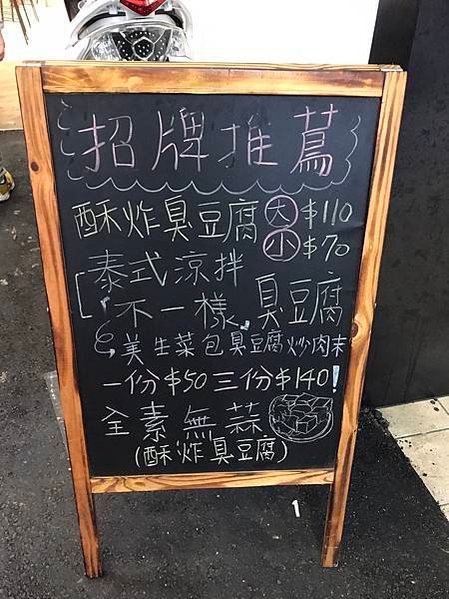 招牌推薦
酥炸臭豆腐 大 $110
小 $70
泰式涼拌
不一樣臭豆腐
美生菜包臭豆腐炒肉末
一份$50 三份$140!
全素無蒜
(酥炸臭豆腐)